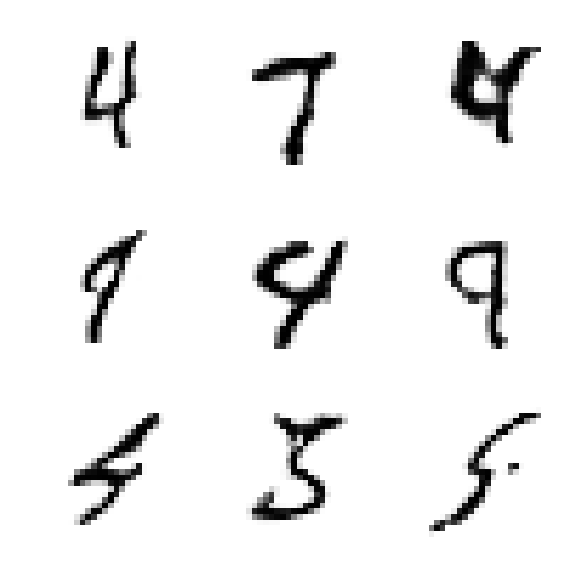 4 7 4
9 4 9
5 5 5